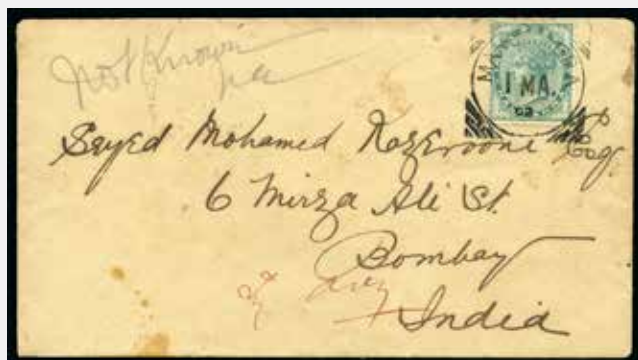 Not Known
MA
1 MA.
03
Seyed Mohamed Kazerooni Esq.
6 Mirza Ali St.
Bombay
India